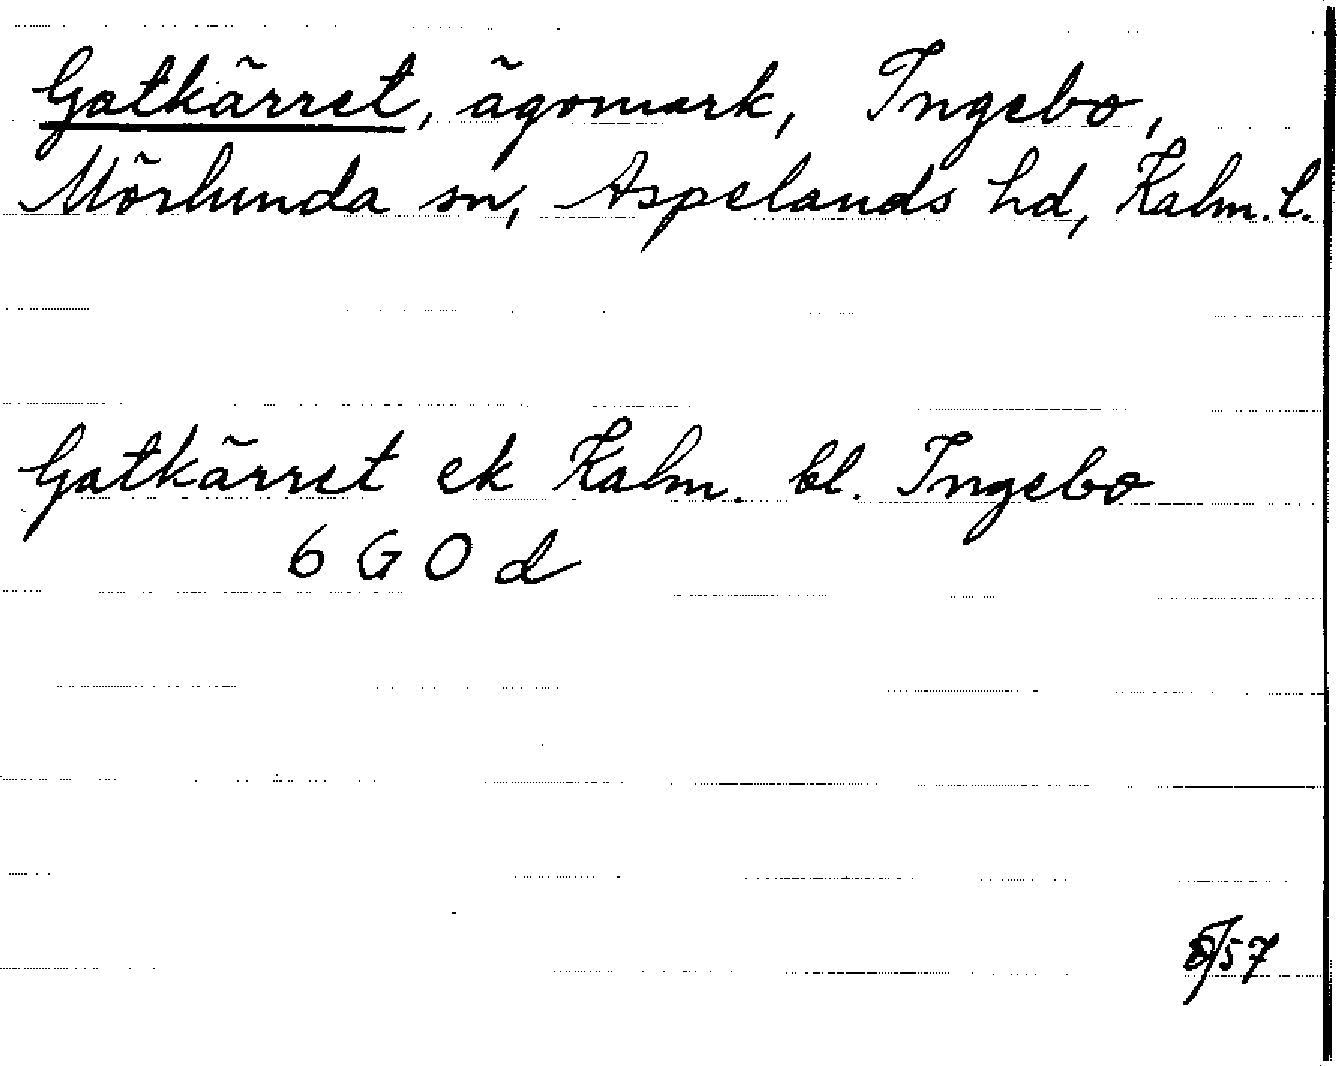 Gatkärret, ägomark, Ingebo,
Mörlunda sn, Aspelands hd, Kalm. l.
Gatkärret ek Kalm. bl. Ingebo
6 G O d
8/57